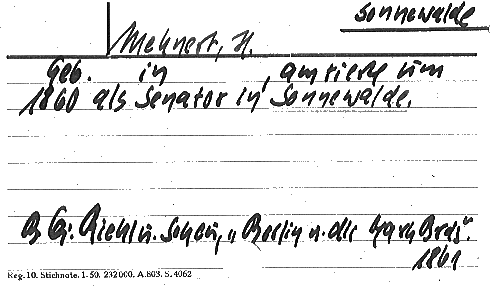 Sonnewalde
Mehnert, H.
Geb. in , amtierte um
1860 als Senator in Sonnewalde.
Riehl u. Scheu, „Berlin u. die Mark Brdg."
1861
Reg. 10. Stichnote. 1-50. 232000. A.803. S. 4062